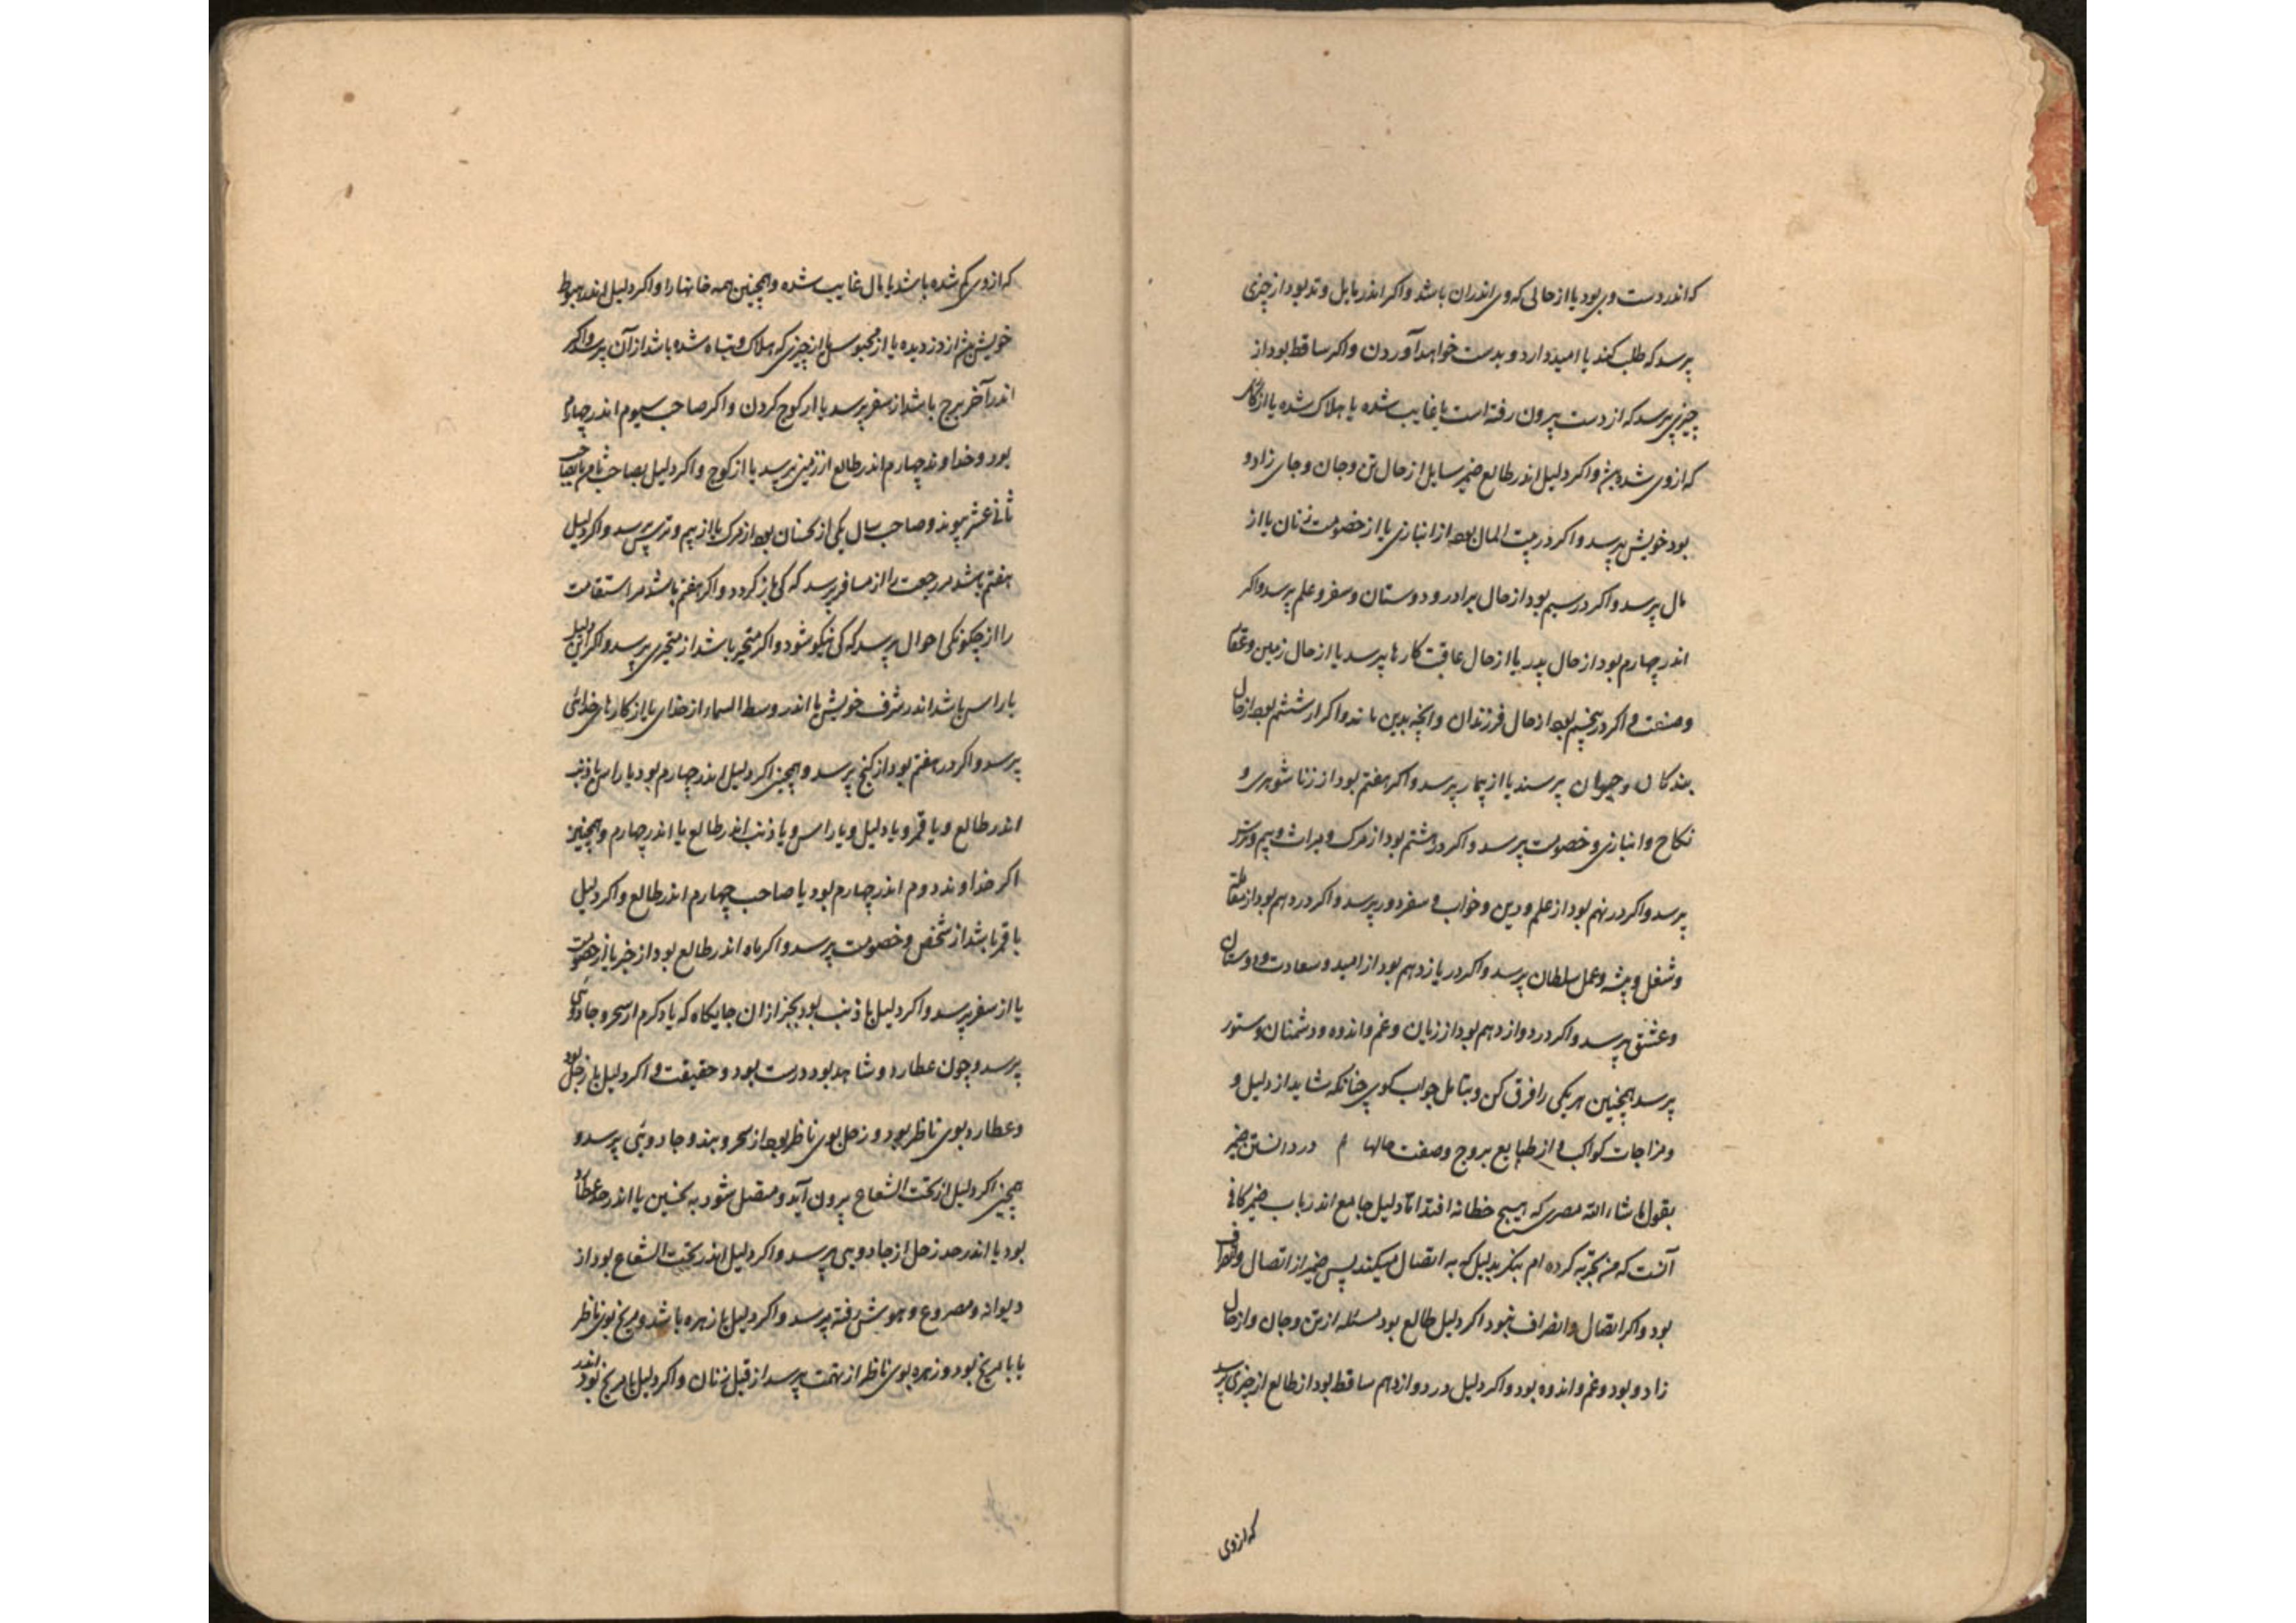 که اندر دست وی بود یا از حالی که وی اندران باشد و اکر اندر مایل وتد بود از چیزی
پرسد که طلب کند یا امید دارد و بدست خواهد آوردن و اکر ساقط بود از
چیزی پرسد که از دست بیرون رفته است یا غایب شده یا هلاک شده یا از کار
که ازوی شده و اکر دلیل اندر طالع ضمیر سایل از حال تن و جان و جای زاد و
بود خویش پرسد و اکر در بیت المال بود از انبازی یا از خصومت زنان یا از
مال پرسد و اکر در سیم بود از حال برادر و دوستان و سفر و علم پرسد و اکر
اندر چهارم بود از حال پدر یا از حال عاقبت کارها پرسد یا از حال زمین و عقار
و صنعت و اکر در پنجم بود از حال فرزندان و آنچه بدین ماند و اکر از ششم بود از حال
بندکان و حیوان پرسند یا از بیمار پرسد و اکر هفتم بود از زنا شوهری و
نکاح و انبازی و خصومت پرسد و اکر در هشتم بود از مرک و میراث و بیم و ترس
پرسد و اکر در نهم بود از علم و دین و خواب و سفر دور پرسد و اکر در دهم بود از
و شغل و پیشه و عمل سلطان پرسد و اکر در یازدهم بود از امید و سعادت و دوستان
و عشق پرسد و اکر در دوازدهم بود از زیان و غم و اندوه و دشمنان و ستور
پرسد همچنین هر یکی را فرق کن و بتامل جواب کوی چنانکه شاید از دلیل و
و مزاجات کواکب و از طبایع بروج و صفت حالها م در دانستن ضمیر
بقول ما شاء الله مصری که هیچ خطا نه افتد اما دلیل جامع اندر باب ضمیر کافی
آنست که من تجربه کرده ام بنکر بدلیل که به اتصال میکند پس ضمیر از اتصال و انصراف
بود و اکر اتصال و انصراف نبود اکر دلیل طالع بود مسئله از تن و جان و از حال
زاد و بود و غم و اندوه بود و اکر دلیل در دوازدهم ساقط بود از طالع از چیزی پرسد
که ازوی
که ازوی کم شده باشد یا مال غایب شده و همچنین همه خانها را و اکر دلیل اندر هبوط
خویش از دزدیده یا از محبوس یا از چیزی که هلاک و تباه شده باشد از آن پرسد و اکر
اندر آخر برج باشد از سفر پرسد یا از کوچ کردن و اکر صاحب سیوم اندر چهارم
بود و خداوند چهارم اندر طالع از زمین پرسد یا از کوچ و اکر دلیل بصاحب ثامن یا بصاحب
ثانی عشر پیوندد و صاحب سال یکی از نحسان بود از مرک یا از بیم و ترس پرسد و اکر دلیل
هفتم باشد مر رجعت را از مسافر پرسد که کی باز کردد و اکر هفتم باشد مر استقامت
را از چکونکی احوال پرسد که کی نیکو شود و اکر متحیر باشد از متحیری پرسد و اکر این دلیل
با راس باشد اندر شرف خویش یا اندر وسط السماء از خدای یا از کارهای خدائی
پرسد و اکر در هفتم بود از کنج پرسد و همچنین اکر دلیل اندر چهارم بود با راس یا ذنب
اندر طالع و یا قمر و یا دلیل و یا راس و یا ذنب اندر طالع یا اندر چهارم و همچنین
اکر خداوند دوم اندر چهارم بود یا صاحب چهارم اندر طالع و اکر دلیل
با قمر باشد از شخص و خصومت پرسد و اکر ماه اندر طالع بود از خبر یا از خصومت
یا از سفر پرسد و اکر دلیل با ذنب بود بجز ازان جایکاه که یاد کردم از سحر و جادوئی
پرسد و چون عطارد و شاهد بود درست بود و حقیقت و اکر دلیل با زحل بود
و عطارد بوی ناظر بود و زحل بوی ناظر بود از سحر و بند و جادوئی پرسد و
همچنین اکر دلیل از تحت الشعاع بیرون آید و متصل شود به نحسین یا اندر حد عطارد
بود یا اندر حد زحل از جادویی پرسد و اکر دلیل اندر تحت الشعاع بود از
دیوانه و مصروع و هوش رفته پرسد و اکر دلیل با زهره باشد و مریخ بوی ناظر
یا با مریخ بود و زهره بوی ناظر از تهمت پرسد از قبل زنان و اکر دلیل با مریخ بود اندر